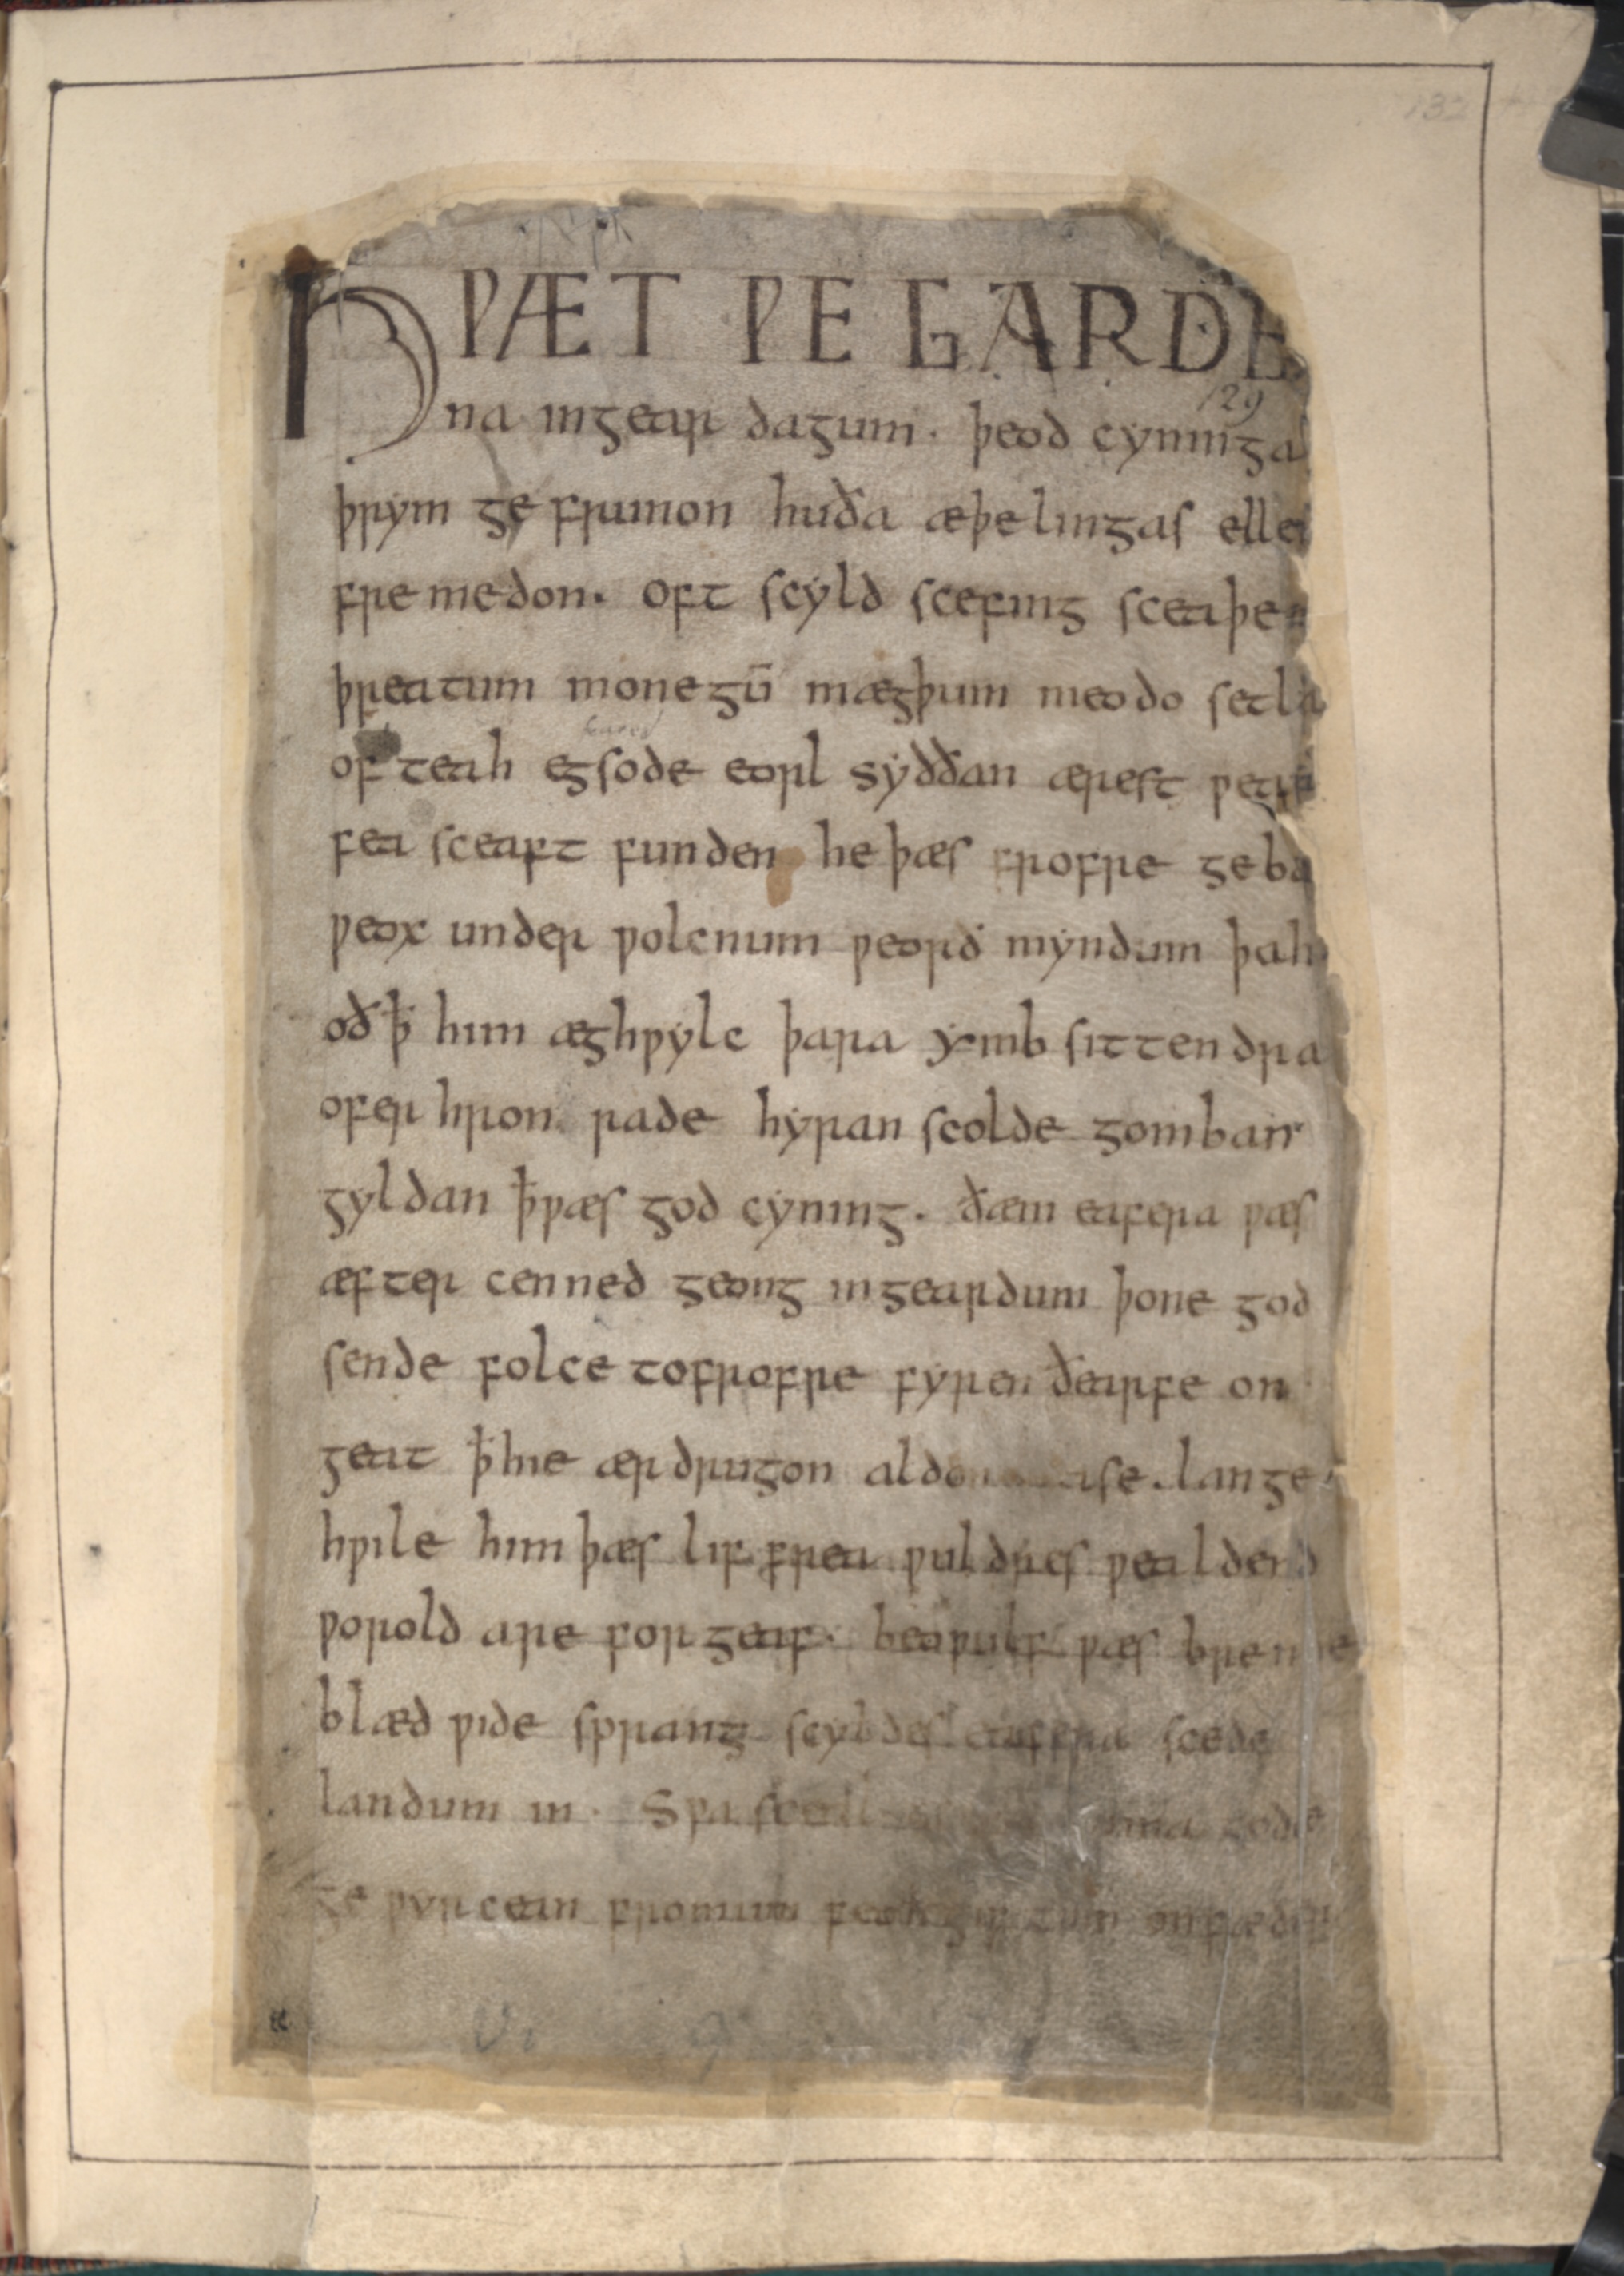 132
HǷÆT ǷE GARDE
129
na ingear dagum. þeod cyninga
þrym ge frunon huða æþelingas elle
fre medon. oft scyld scefing sceaþe
þreatum monegū mægþum meodo setla
of teah egsode eorl syððan ærest ƿear
fea sceaft funden he þæs frofre geba
ƿeox under ƿolcnum ƿeorð myndum þah
oð ꝥ him æghƿylc þara ymb sittendra
ofer hron rade hyran scolde gomban
gyldan ꝥƿæs god cyning. ðæm eafera ƿæs
æfter cenned geong ingeardum þone god
sende folce tofrofre fyren ðearfe on
geat ꝥhie ær drugon aldo ase. lange
hƿile him þæs lif frea ƿuldres ƿealdend
ƿorold are forgeaf. beoƿulf ƿæs breme
blæd ƿide sprang scyldes eafera scede
landum in. Sƿa sceal uma gode
ge ƿyrcean fromum feoh giftum onfæder